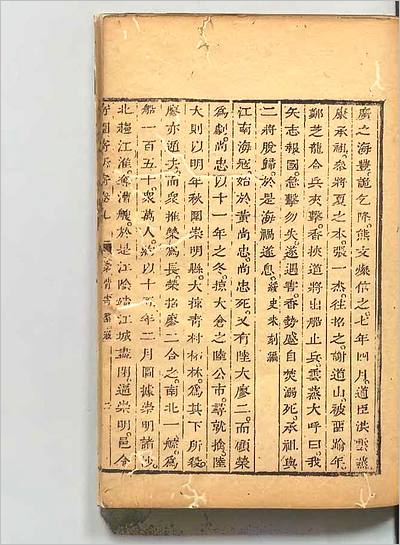 廣之海豐詭乞降熊文燦信之七年四月道臣洪雲蒸
康承祖參將夏之木張一杰往招之謝道山被囚踰年
鄭芝龍合兵夾擊香挾道將出船止兵雲蒸大呼曰我
矢志報國急擊勿失遂遇害香勢蹙自焚溺死承祖與
二將脫歸於是海禍遂息綏史未刻編
江南海寇始於黃尚忠尚忠死又有陸大廖二而顧榮
爲劇尚忠以十一年之冬掠大倉之陸公市尋就擒陸
大則以明年秋圍崇明縣大掠青村柘林爲其下所殺
廖亦遁去而衆推榮爲長榮招廖二合之南北一艘爲
船一百五十衆萬人約以十五年二月圖據崇明諸沙
北趨江淮奪漕艘於是江陰靖江城盡閉道崇明邑令